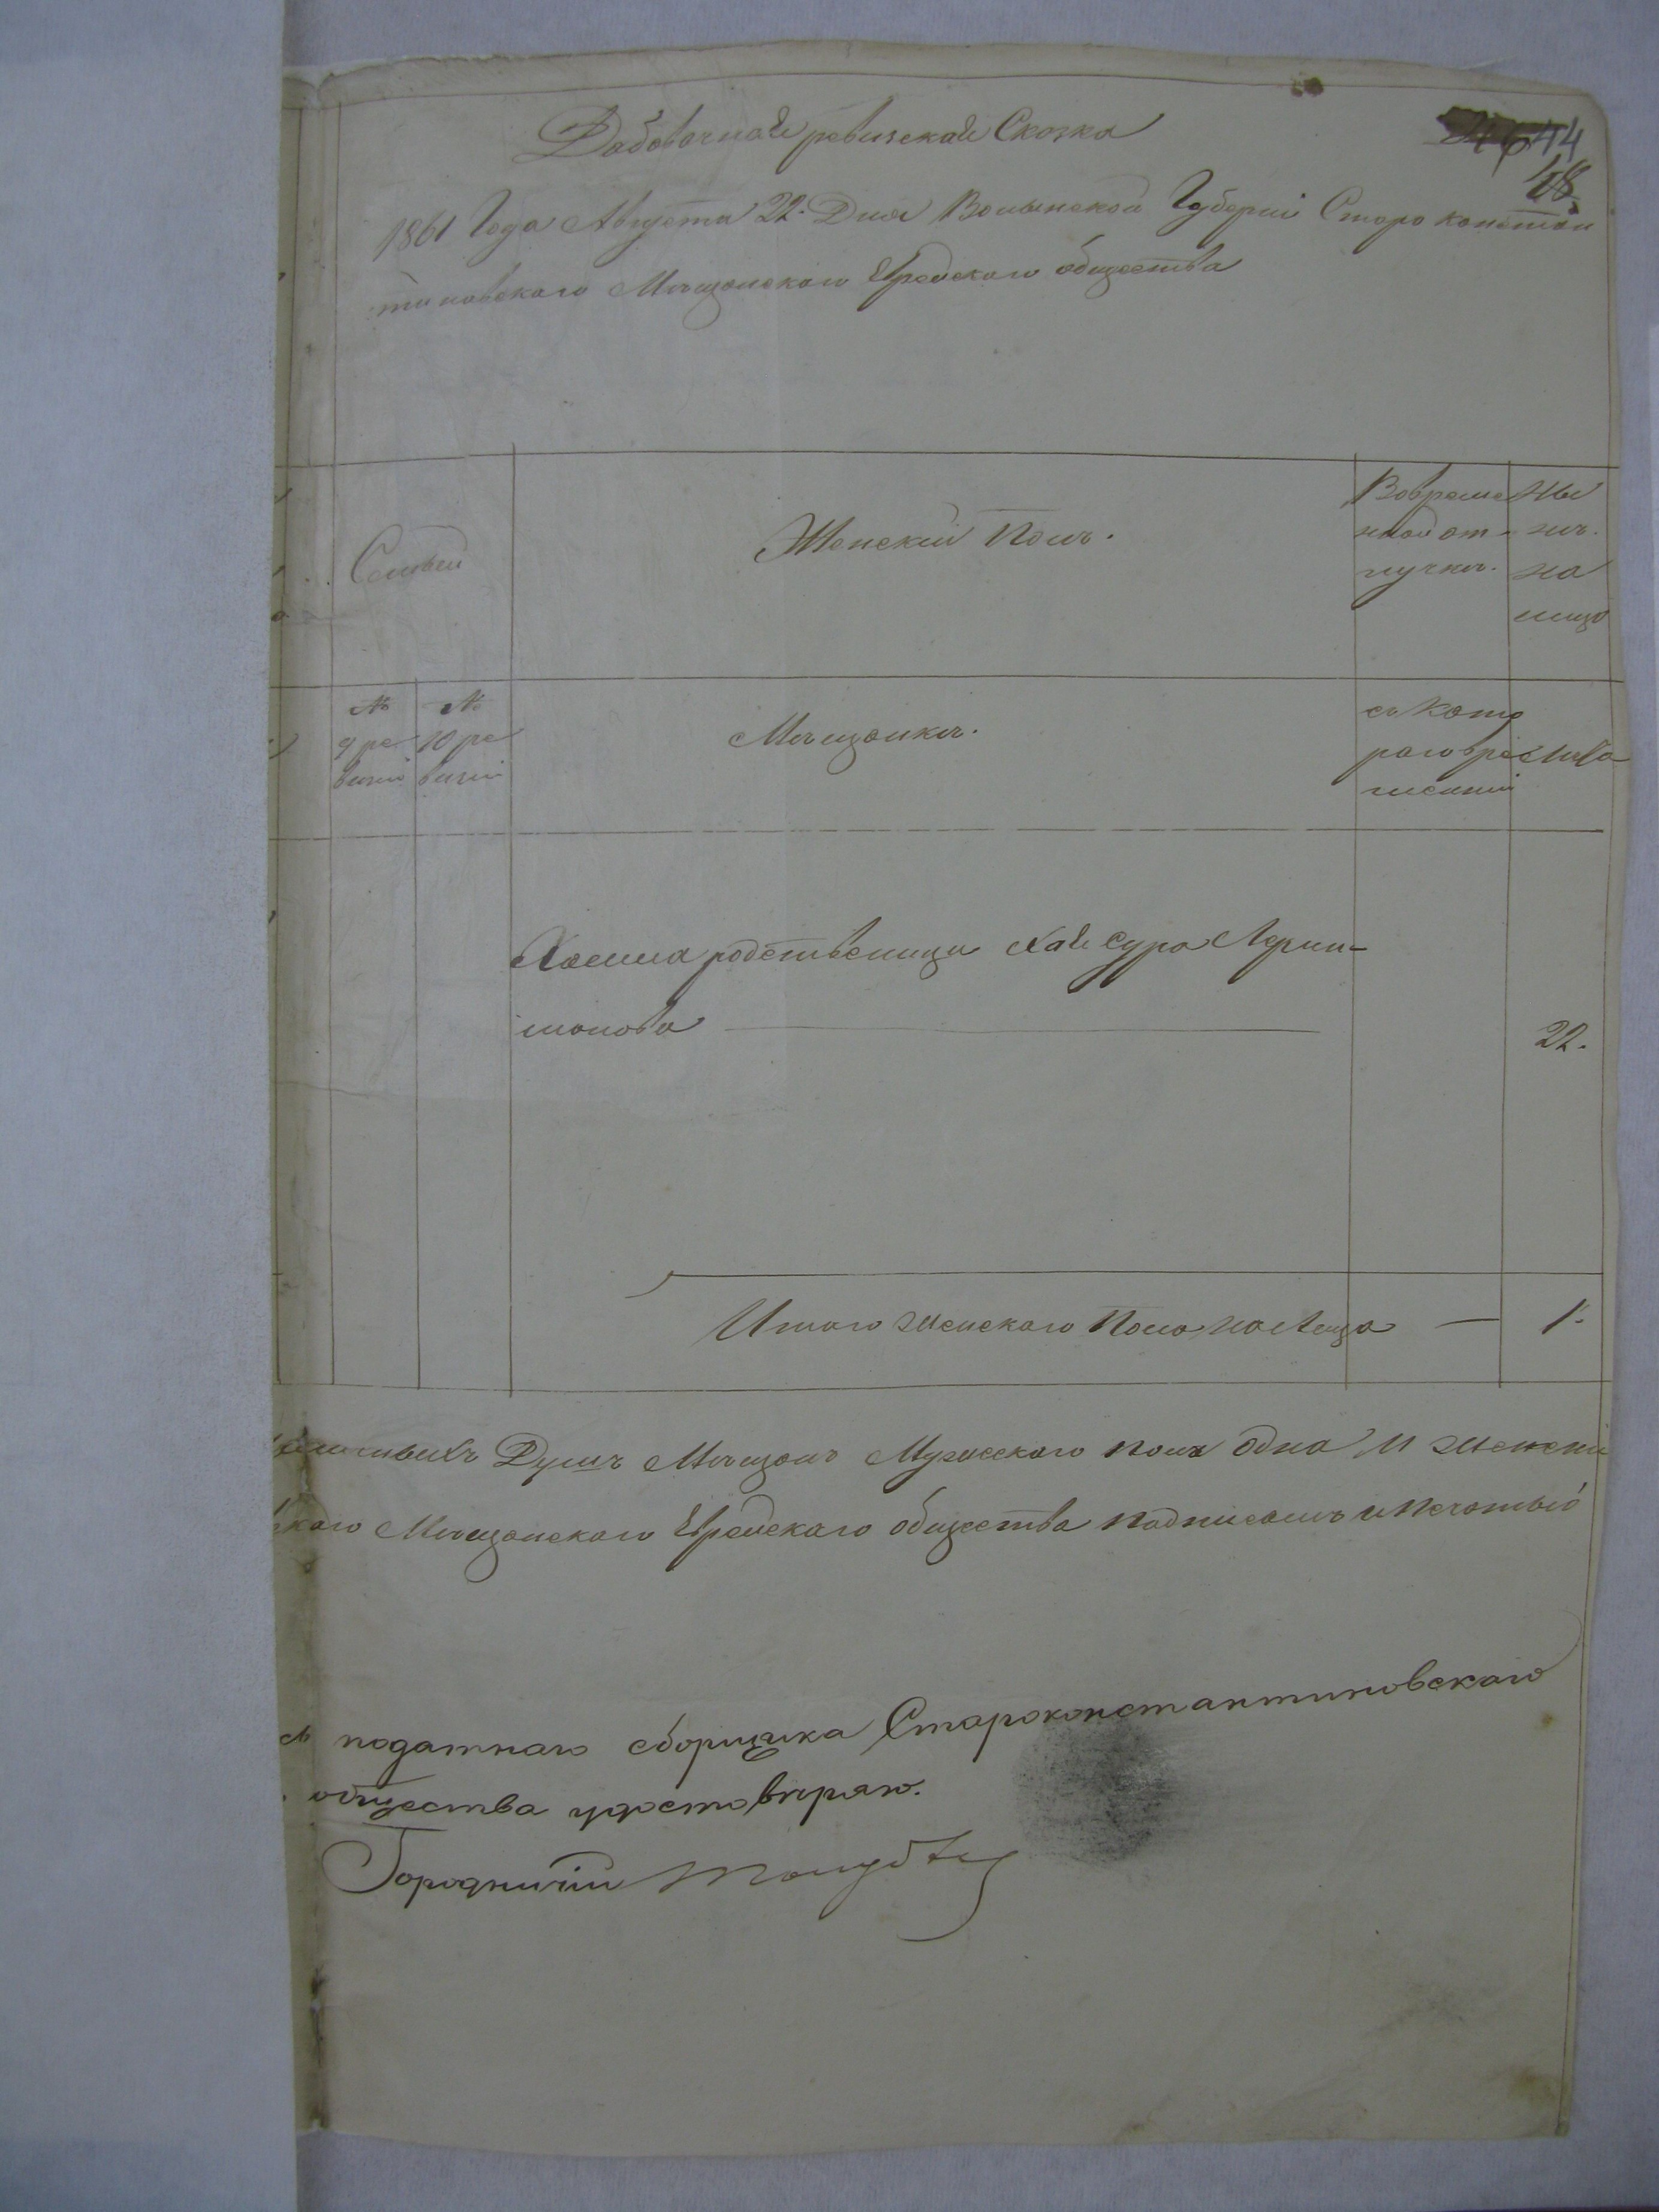 Дабовочная ревизская Сказка
44
18
1861 Года Августа 22. Дня Волынской Губерніи Старо констан
тиновского Мѣщанского Еврейского общества
Семьи
Женскій Полъ.
Вовреме
нной от-
лучкѣ.
Ны
нѣ.
на
лицо
№
9 ре
визіи
№
10 ре
визіи
Мѣщанки.
съ Кото
раго вре
мени
Лѣта
родственица Хая Сура
манова
22.
Итого Женского Пола на Лицо — 1.
Душъ Мѣщанъ Мужеского пола одна И женск
кого Мѣщанского Еврейского общества подписомъ и печатью
податнаго сборщика Староконстантиновскаго
общества удостовѣряю.
Городничій